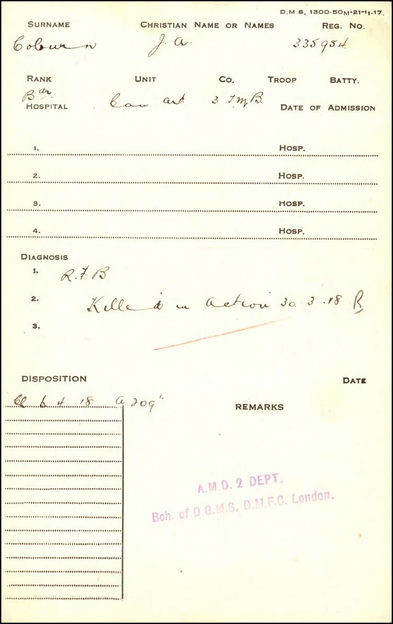 D.M.S. 1300-50M-21-11-17.
SURNAME CHRISTIAN NAME OR NAMES REG. NO.
Coburn J. A. 335954
RANK UNIT CO. TROOP BATTY.
Bdr Can Art 3 T.M.B.
HOSPITAL DATE OF ADMISSION
1. HOSP.
2. HOSP.
3. HOSP.
4. HOSP.
DIAGNOSIS
1. R.F.B
2. Killed in Action 30.3.18
3.
DISPOSITION DATE
6 4 18 A 209
REMARKS
A.M.D. 2 DEPT.
Beh. of D.G.M.S. O.M.F.C. London.